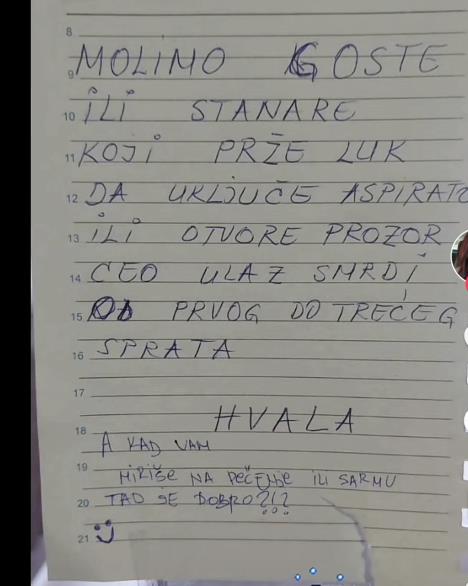 8
9 MOLIMO GOSTE
10 ILI STANARE
11 KOJI PRŽE LUK
12 DA UKLJUČE ASPIRATO
13 ILI OTVORE PROZOR
14 CEO ULAZ SMRDI
15 OD PRVOG DO TREĆEG
16 SPRATA
17
18 HVALA
A KAD VAM
19 MIRIŠE NA PEČENJE ILI SARMU
20 TAD JE DOBRO?!?
21 :)